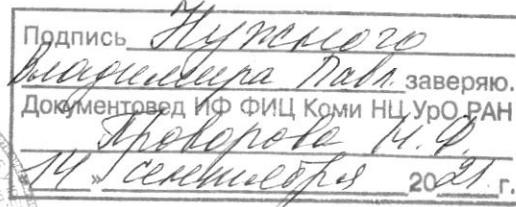 Подпись Нужного
Владимира Павл. заверяю.
Документовед ИФ ФИЦ Коми НЦ УрО РАН
Проворова Н.Ф.
"14" сентября 2021 г.